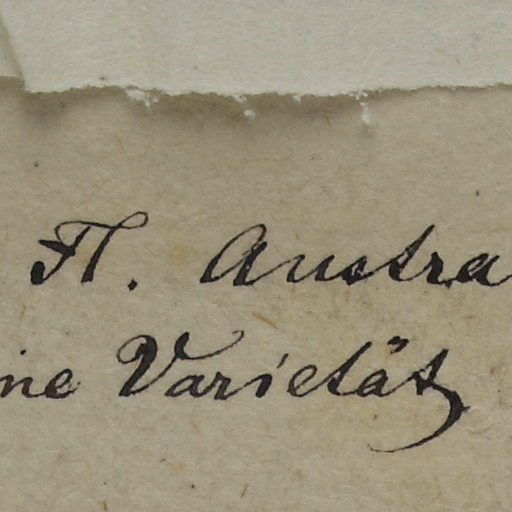 Fl. Austra
ne Varietät